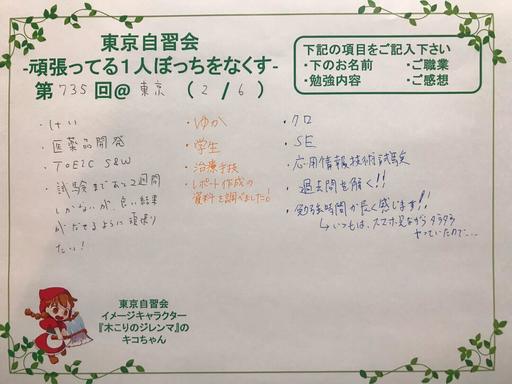 東京自習会
-頑張ってる1人ぼっちをなくす-
第735回@東京(2/6)
下記の項目をご記入下さい
・下のお名前 ・ご職業
・勉強内容 ・ご感想
・けい
・医薬品開発
・TOEIC S&W
・試験まであと2週間
しかないが、良い結果
がだせるように頑張り
たい!
・ゆか
・学生
・治療手技
・レポート作成の
資料を調べました!
・クロ
・SE
・応用情報技術試験
・過去問を解く!!
・勉強時間が長く感じます!!
↳いつもは、スマホ見ながらダラダラ
やっていたので…
東京自習会
イメージキャラクター
『木こりのジレンマ』の
キコちゃん